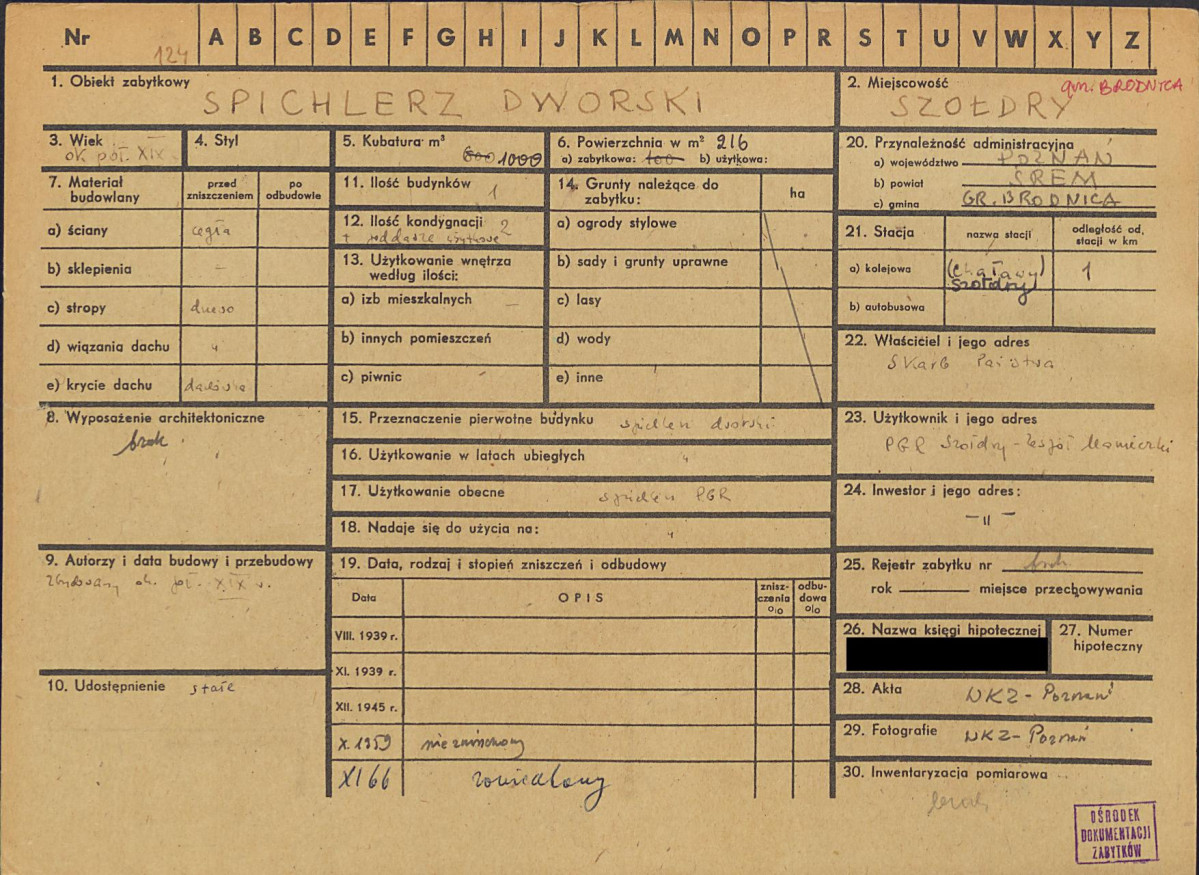 Nr 124 A B C D E F G H I J K L M N O P R S T U V W X Y Z
1. Obiekt zabytkowy
SPICHLERZ DWORSKI
2. Miejscowość gm. BRODNICA
SZOŁDRY
3. Wiek
ok. poł. XIX
4. Styl
5. Kubatura m³
600 1000
6. Powierzchnia w m² 216
a) zabytkowa: 100 b) użytkowa:
7. Materiał budowlany
przed zniszczeniem
po odbudowie
a) ściany cegła
b) sklepienia –
c) stropy drewno
d) wiązania dachu "
e) krycie dachu dachówka
8. Wyposażenie architektoniczne
brak
9. Autorzy i data budowy i przebudowy
zbudowany ok. poł. XIX w.
10. Udostępnienie stałe
11. Ilość budynków 1
12. Ilość kondygnacji 2
+ poddasze użytkowe
13. Użytkowanie wnętrza
według ilości:
a) izb mieszkalnych –
b) innych pomieszczeń
c) piwnic
14. Grunty należące do
zabytku:
ha
a) ogrody stylowe
b) sady i grunty uprawne
c) lasy
d) wody
e) inne
15. Przeznaczenie pierwotne budynku spichlerz dworski
16. Użytkowanie w latach ubiegłych "
17. Użytkowanie obecne spichlerz PGR
18. Nadaje się do użycia na: "
19. Data, rodzaj i stopień zniszczeń i odbudowy
Data
OPIS
znisz-
czenia
o/o
odbu-
dowa
o/o
VIII. 1939 r.
XI. 1939 r.
XII. 1945 r.
X. 1959 nie zniszczony
XI 66
20. Przynależność administracyjna
a) województwo POZNAŃ
b) powiat ŚREM
c) gmina GR. BRODNICA
21. Stacja
nazwa stacji
odległość od,
stacji w km
a) kolejowa (Chaławy) 1
Szołdry
b) autobusowa
22. Właściciel i jego adres
Skarb Państwa
23. Użytkownik i jego adres
PGR Szołdry - Zespół Manieczki
24. Inwestor i jego adres:
– " –
25. Rejestr zabytku nr brak
rok miejsce przechowywania
26. Nazwa księgi hipotecznej
27. Numer
hipoteczny
28. Akta WKZ - Poznań
29. Fotografie WKZ - Poznań
30. Inwentaryzacja pomiarowa
brak
OŚRODEK
DOKUMENTACJI
ZABYTKÓW